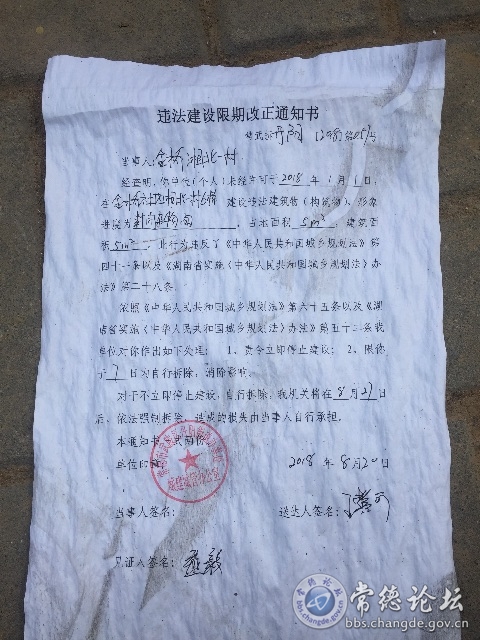 违法建设限期改正通知书
当事人:
经查明,你单位(个人)未经许可于2018年1月1日,
在 建设违法建筑物(构筑物),形象
进度为 ,占地面积5m²,建筑面
积5m²。此行为违反了《中华人民共和国城乡规划法》第
四十条以及《湖南省实施〈中华人民共和国城乡规划法〉办
法》第二十八条。
依照《中华人民共和国城乡规划法》第六十五条以及《湖
南省实施〈中华人民共和国城乡规划法〉办法》第五十二条我
单位对你作出如下处理:1、责令立即停止建设;2、限你
于7日内自行拆除,消除影响。
对于不立即停止建设,自行拆除,我机关将在8月27日
后,依法强制拆除,造成的损失由当事人自行承担。
本通知书
单位印
2018年8月20日
当事人签名: 送达人签名:
见证人签名:
常德论坛
bbs.changde.gov.cn